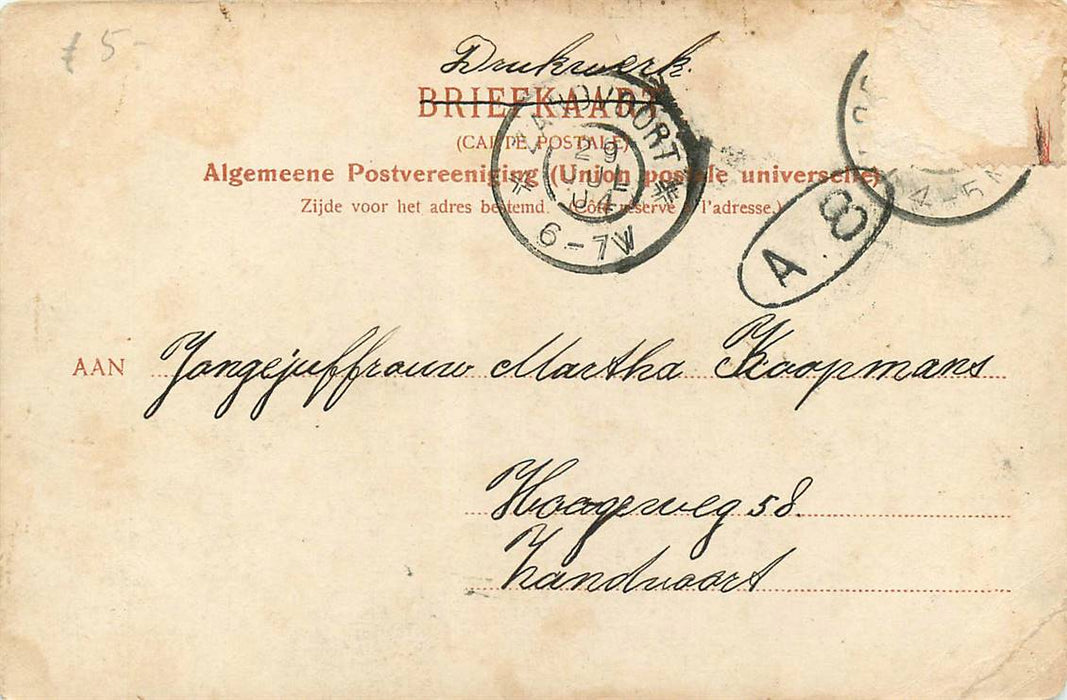 £ 5-
Drukwerk.
BRIEFKAART
(CARTE POSTALE)
Algemeene Postvereeniging (Union postale universelle)
Zijde voor het adres bestemd. (Côté réservé à l'adresse.)
ZANDVOORT
29
JUL
04
6-7V
4-5N
A 8
AAN Jongejuffrouw Martha Koopmans
Hoogeweg 58.
Zandvoort